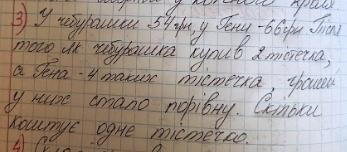 3) У чебурашки 54грн, у Гени - 66грн. Після
того як чебурашка купив 2 тістечка,
а Гена - 4 таких тістечка, грошей
у них стало порівну. Скільки
коштує одне тістечко.
4)